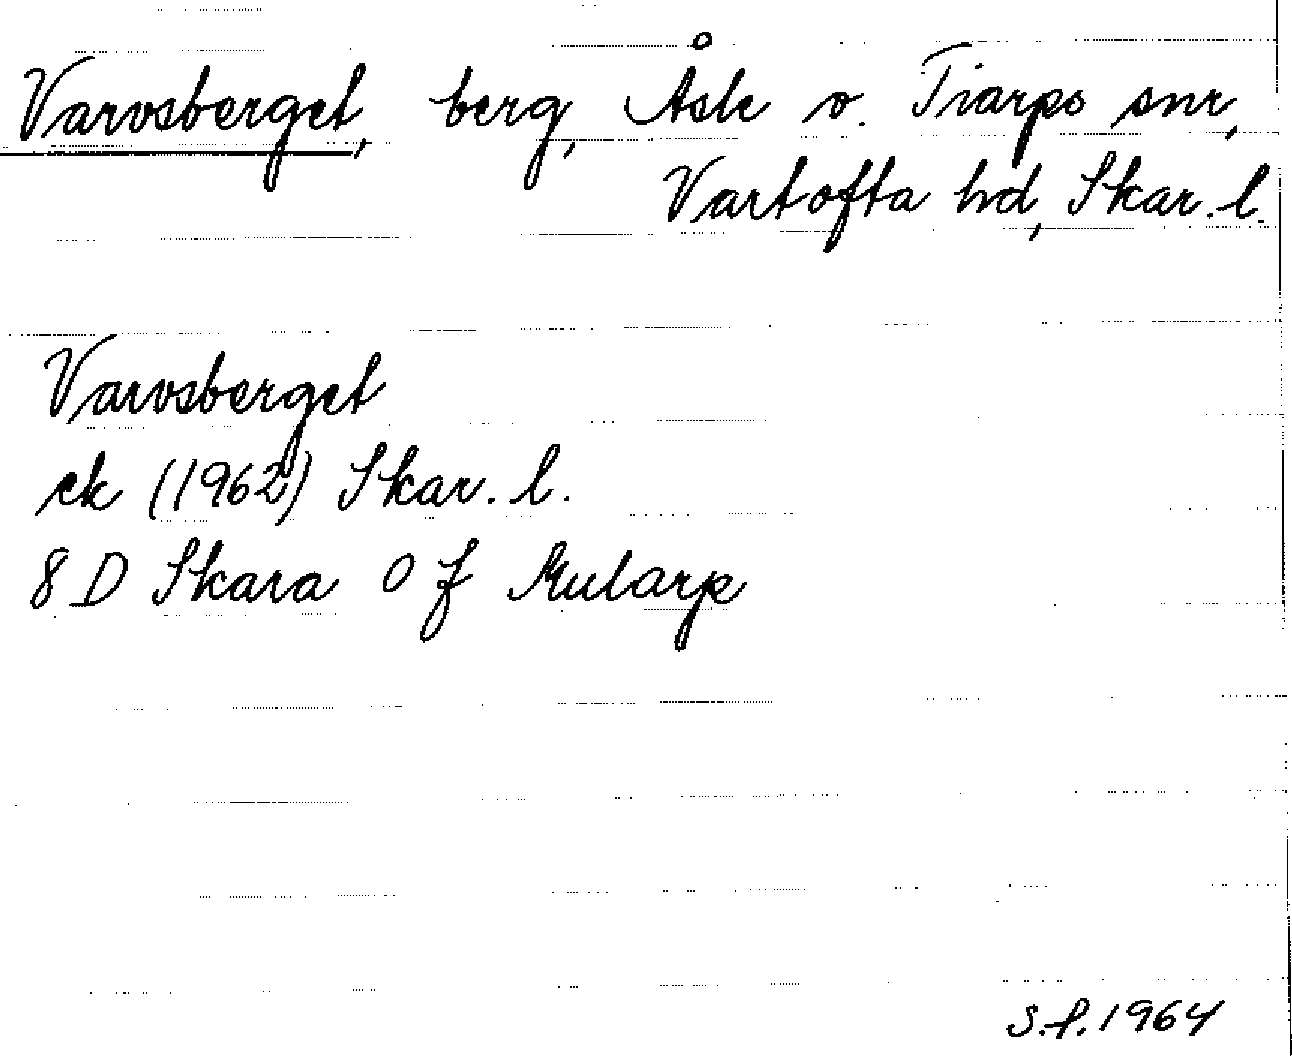 Varvsberget, berg, Åsle o. Tiarps snr,
Vartofta hd, Skar. l.
Varvsberget
ek (1962) Skar. l.
8 D Skara 0 f Mularp
S.f. 1964